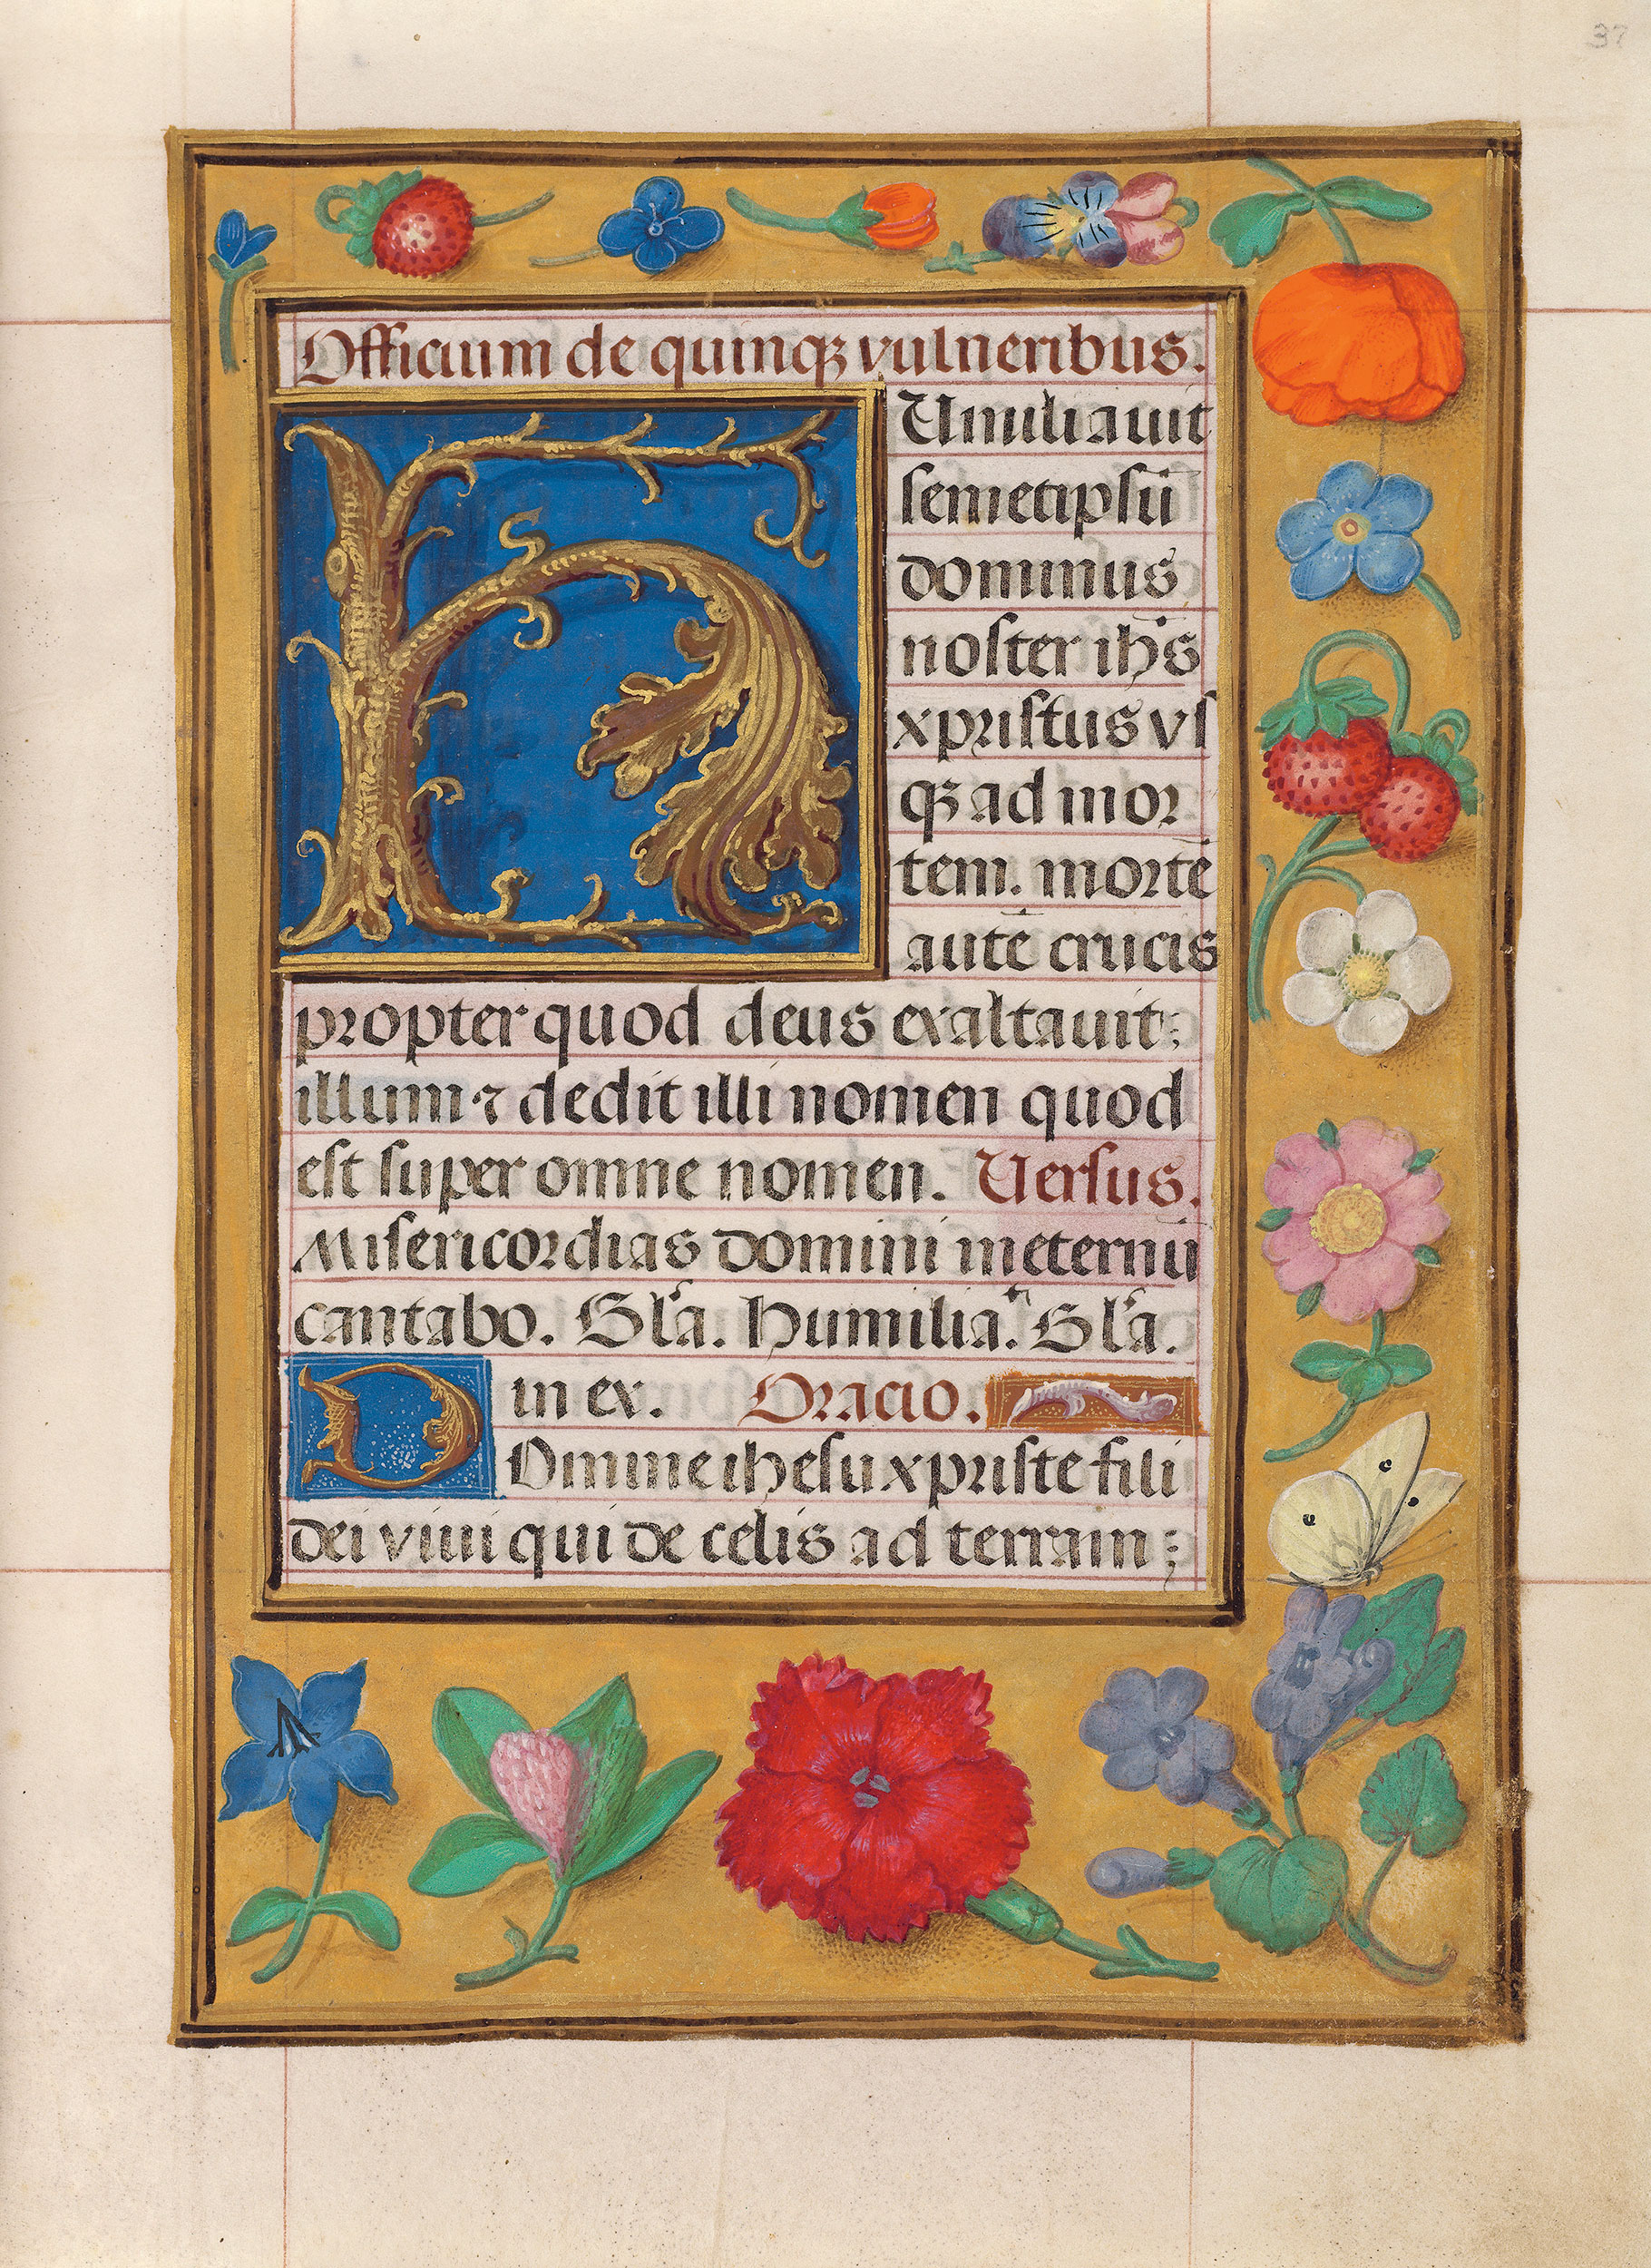 37
Officium de quinqꝫ vulneribus.
HUmiliauit
semetipsū
dominus
noster ihs̄
xpristus vs
qꝫ ad mor
tem. mortē
autē crucis
propter quod deus exaltauit
illum ⁊ dedit illi nomen quod
est super omne nomen. Versus.
Misericordias domini in eternū
cantabo. Gl̄a. Humilia. Gl̄a.
in ex. Oracio.
DOmine ihesu xpriste fili
dei viui qui de celis ad terram